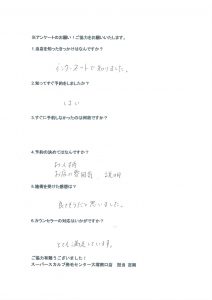 ※アンケートのお願い!ご協力をお願いいたします。
1.当店を知ったきっかけはなんですか?
インターネットで知りました。
2.知ってすぐ予約をしましたか?
はい
3.すぐに予約しなかったのは何故ですか?
4.予約の決めてはなんですか?
お人柄
お店の雰囲気 説明
5.施術を受けた感想は?
良さそうだと思いました。
6.カウンセラーの対応はいかがですか?
とても満足しています。
ご協力有難うございました!
スーパースカルプ発毛センター大塚駅口店 担当